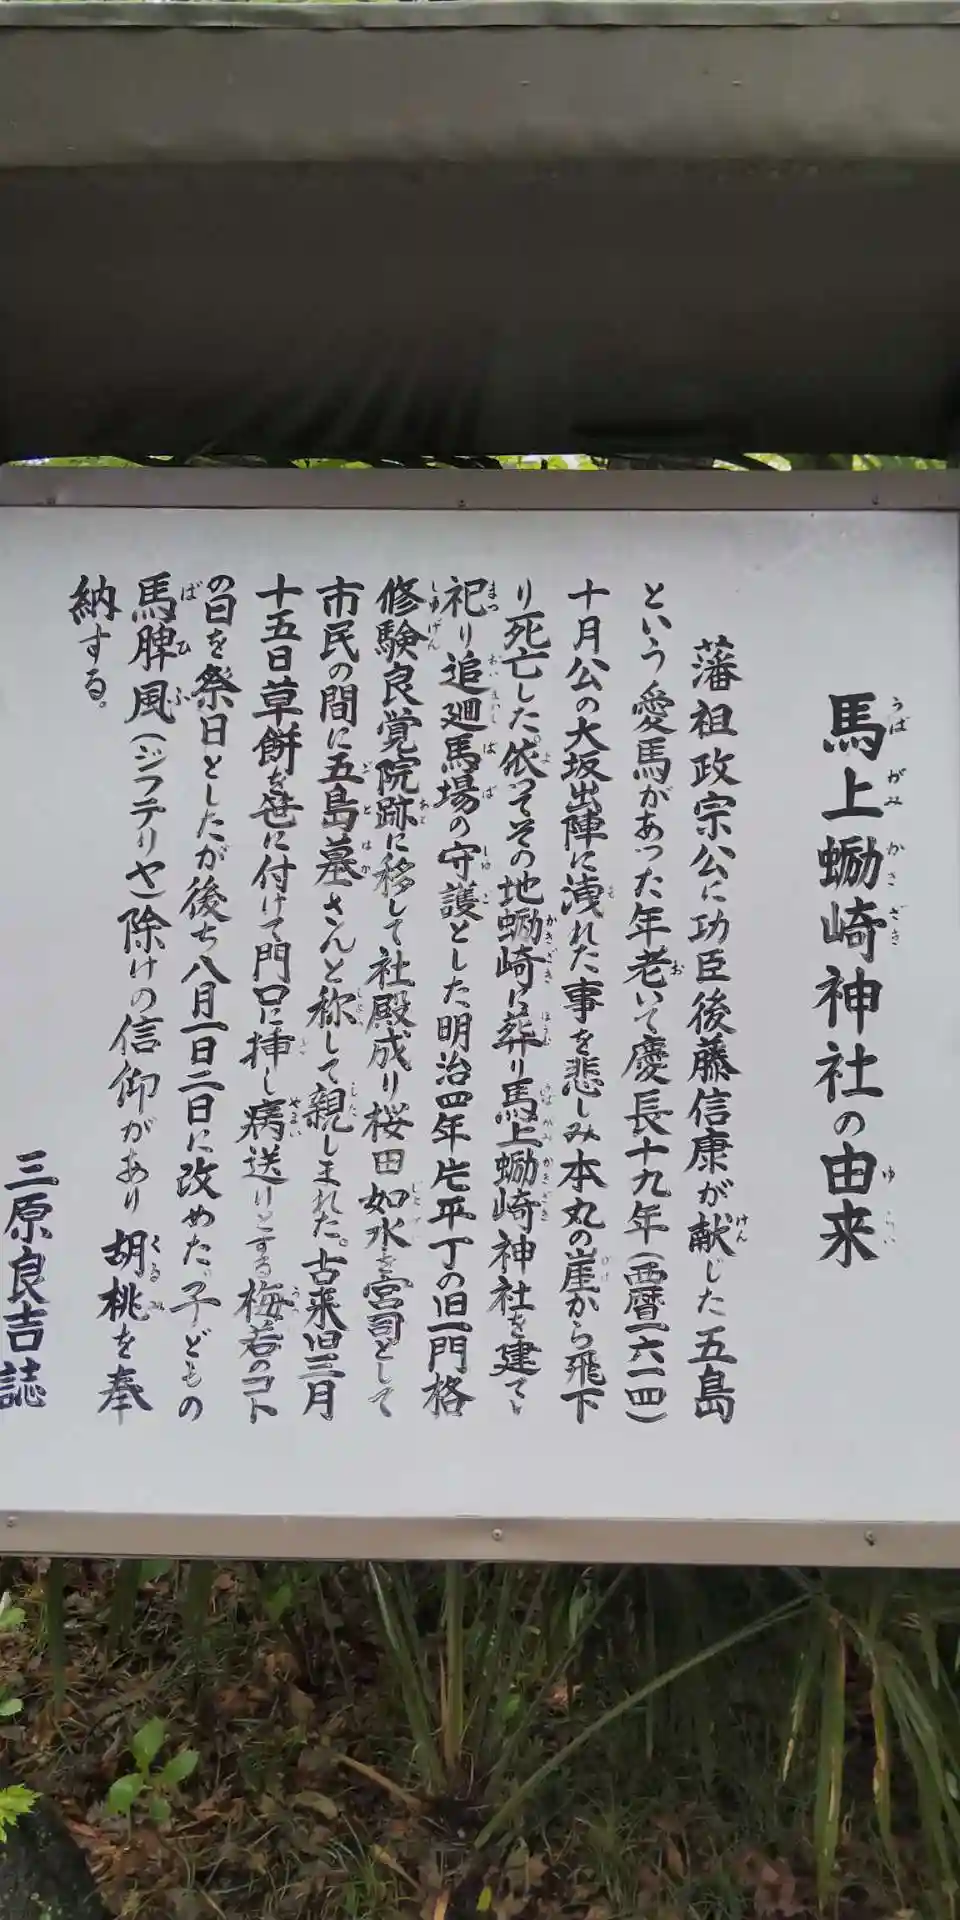 馬上蛎崎神社の由来
藩祖政宗公に功臣後藤信康が献じた五島
という愛馬があった年老いて慶長十九年(西暦一六一四)
十月公の大坂出陣に洩れた事を悲しみ本丸の崖から飛下
り死亡した。依ってその地蛎崎に葬り馬上蛎崎神社を建てゝ
祀り追廻馬場の守護とした、明治四年片平丁の旧一門格
修験良覚院跡に移して社殿成り桜田如水を宮司として
市民の間に五島墓さんと称して親しまれた。古来旧三月
十五日草餅を笹に付けて門口に挿し病送りとする梅若のコト
の日を祭日としたが後ち八月一日二日に改めた。子どもの
馬脾風(ジフテリヤ)除けの信仰があり胡桃を奉
納する。
三原良吉誌